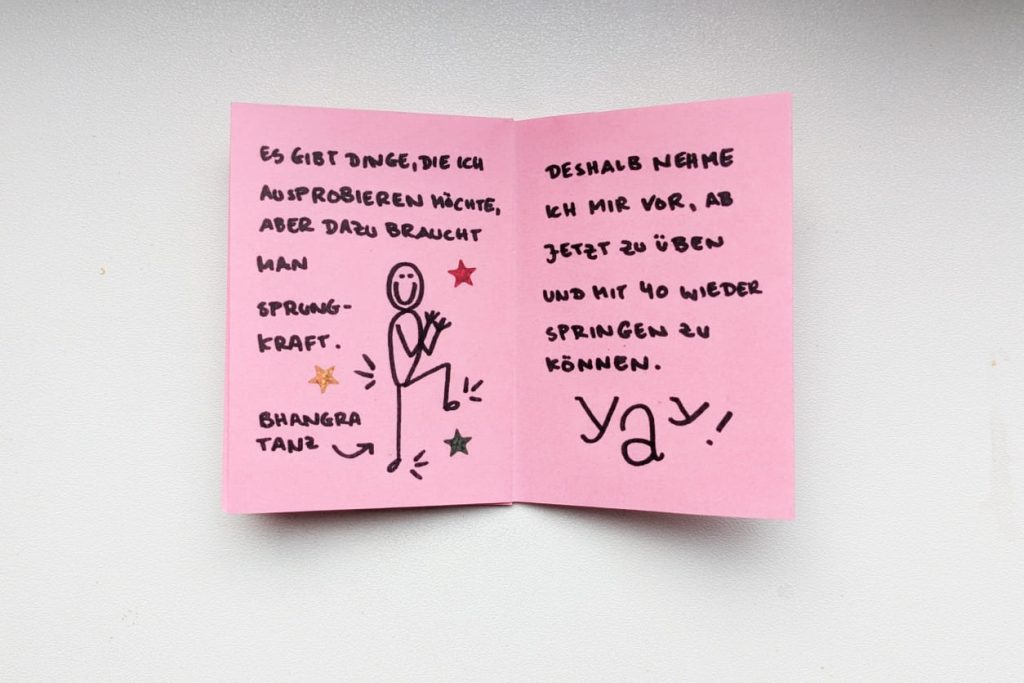 ES GIBT DINGE, DIE ICH
AUSPROBIEREN MÖCHTE,
ABER DAZU BRAUCHT
MAN
SPRUNG-
KRAFT.
BHANGRA
TANZ
DESHALB NEHME
ICH MIR VOR, AB
JETZT ZU ÜBEN
UND MIT 40 WIEDER
SPRINGEN ZU
KÖNNEN.
YaY!